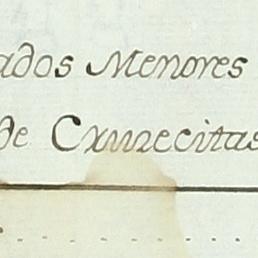 ados Menores
de Cxurecitas